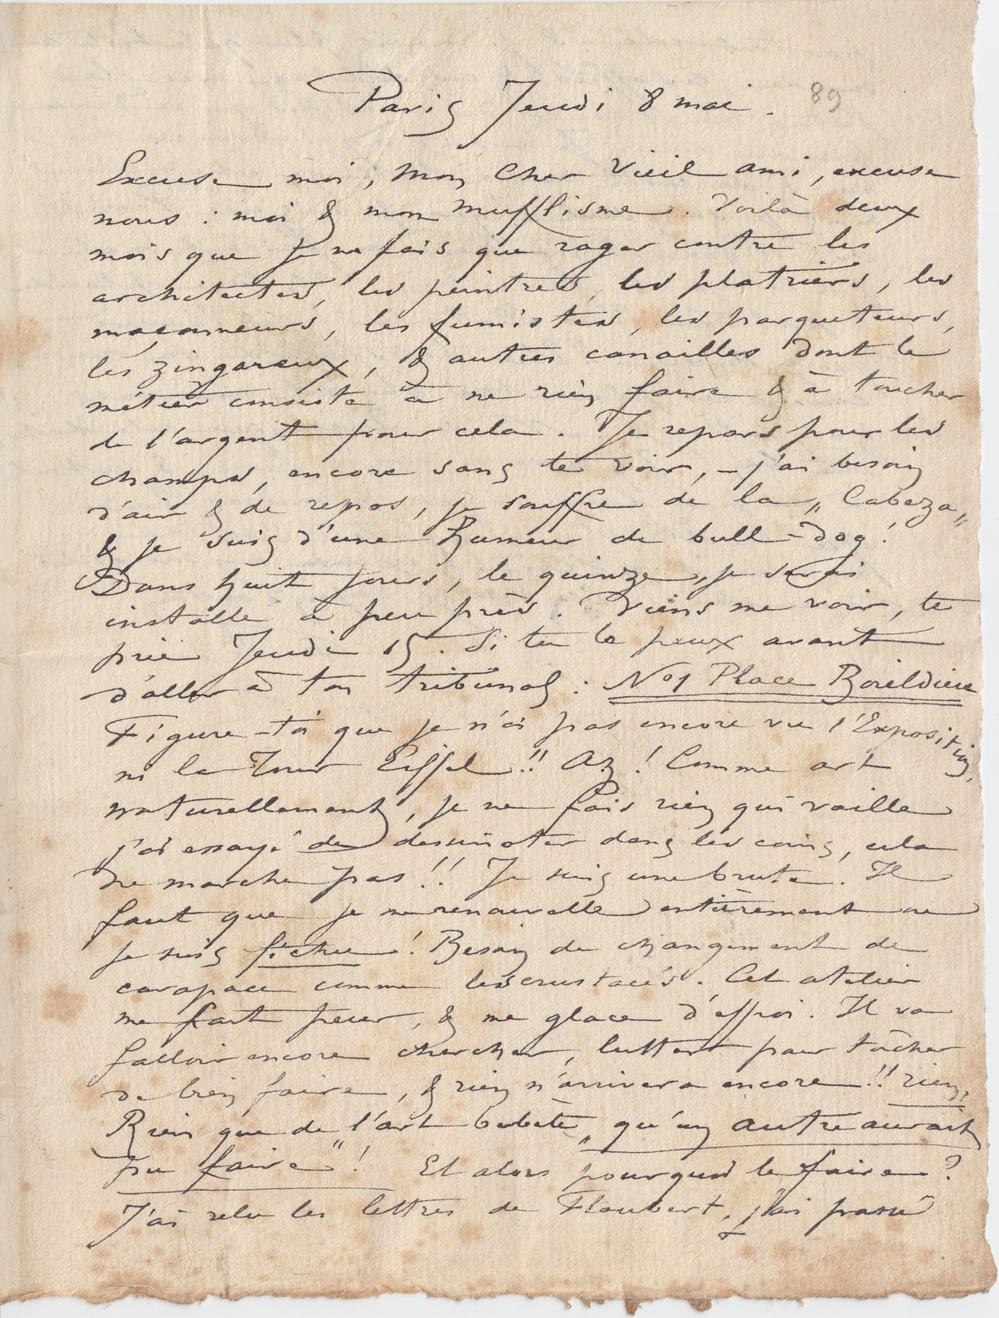 Paris Jeudi 8 mai. 89
Excuse moi, mon cher vieil ami, excuse
nous : moi & mon mufflisme. Voilà deux
mois que je ne fais que rager contre les
architectes, les peintres, les platriers, les
maçonneurs, les fumistes, les parqueteurs,
les zingareux, & autres canailles dont le
métier consiste à ne rien faire & à toucher
de l'argent pour cela. Je repars pour les
champs, encore sans te voir, – j'ai besoin
d'air & de repos, je souffre de la „Cabeza„
& je suis d'une humeur de bull-dog!
Dans huit jours, le quinze, je serai
installé à peu près. Viens me voir, te
prie Jeudi 15. Si tu le peux avant
d'aller à ton tribunal : No 1 Place Boieldieu
Figure-toi que je n'ai pas encore vu l'Exposition,
ni la Tour Eiffel!! Ah! Comme art
naturellement, je ne fais rien qui vaille
j'ai essayé de dessinoter dans les coins, cela
ne marche pas!! Je suis une brute. Il
faut que je me renouvelle entièrement ou
je suis fichu! Besoin de changement de
carapace comme les crustacés. Cet atelier
me fait peur, & me glace d'effroi. Il va
falloir encore chercher, lutter pour tâcher
de bien faire, & rien n'arrivera encore!! rien,
Rien que de l'art bébête „qu'un autre aurait
pu faire"! Et alors pourquoi le faire?
J'ai relu les lettres de Flaubert, j'ai passé